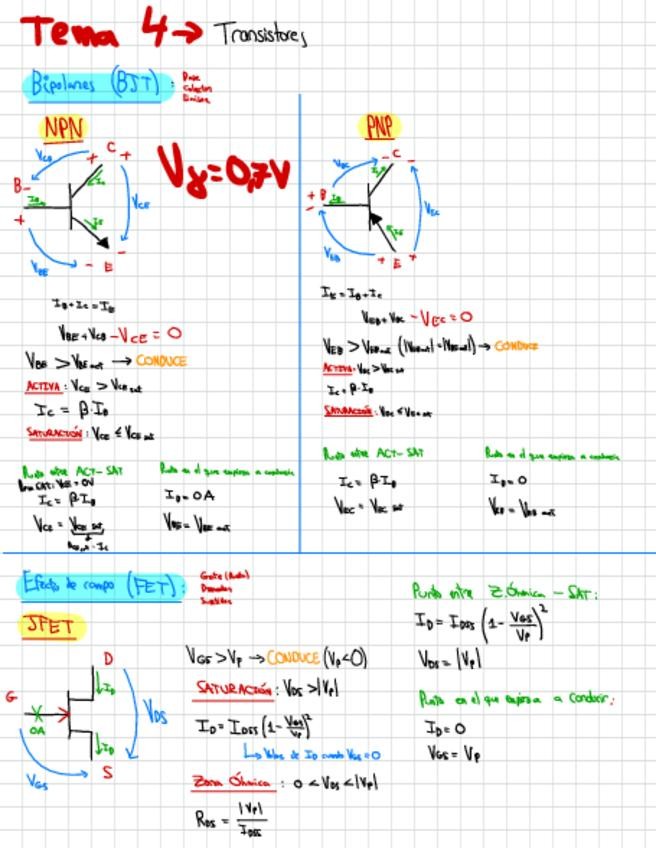 Tema 4 → Transistores
Bipolares (BJT):
Base
Colector
Emisor
NPN
Vγ=0,7V
VCB
C
B
VCE
IB
IC
IE
VBE
E
IB+IC=IE
VBE+VCB-VCE=0
VBE > VBE act → CONDUCE
ACTIVA: VCE > VCE sat
IC = β·IB
SATURACIÓN: VCE ≤ VCE sat
Punto entre ACT-SAT
IC = β·IB
VCE = VCE sat
Punto en el que empieza a conducir
IB = 0A
VBE = VBE act
PNP
VBC
C
B
IB
IC
VEC
IE
VEB
E
IE = IB+IC
VEB+VBC-VEC=0
→ CONDUCE
ACTIVA:
IC = β·IB
SATURACIÓN:
Punto entre ACT-SAT
IC = β·IB
VEC = VEC sat
Punto en el que empieza a conducir
IB = 0
Efecto de campo (FET):
Gate (Puerta)
Drenador
Surtidor
JFET
D
ID
G
0A
VDS
ID
S
VGS
VGS > VP → CONDUCE (VP<0)
SATURACIÓN: VDS > |VP|
ID = IDSS (1 - VGS/VP)²
↳ Valor de ID cuando VGS=0
Zona Óhmica: 0 < VDS < |VP|
RDS = |VP|/IDSS
Punto entre Z.Óhmica - SAT:
ID = IDSS (1 - VGS/VP)²
VDS = |VP|
Punto en el que empieza a conducir:
ID = 0
VGS = VP